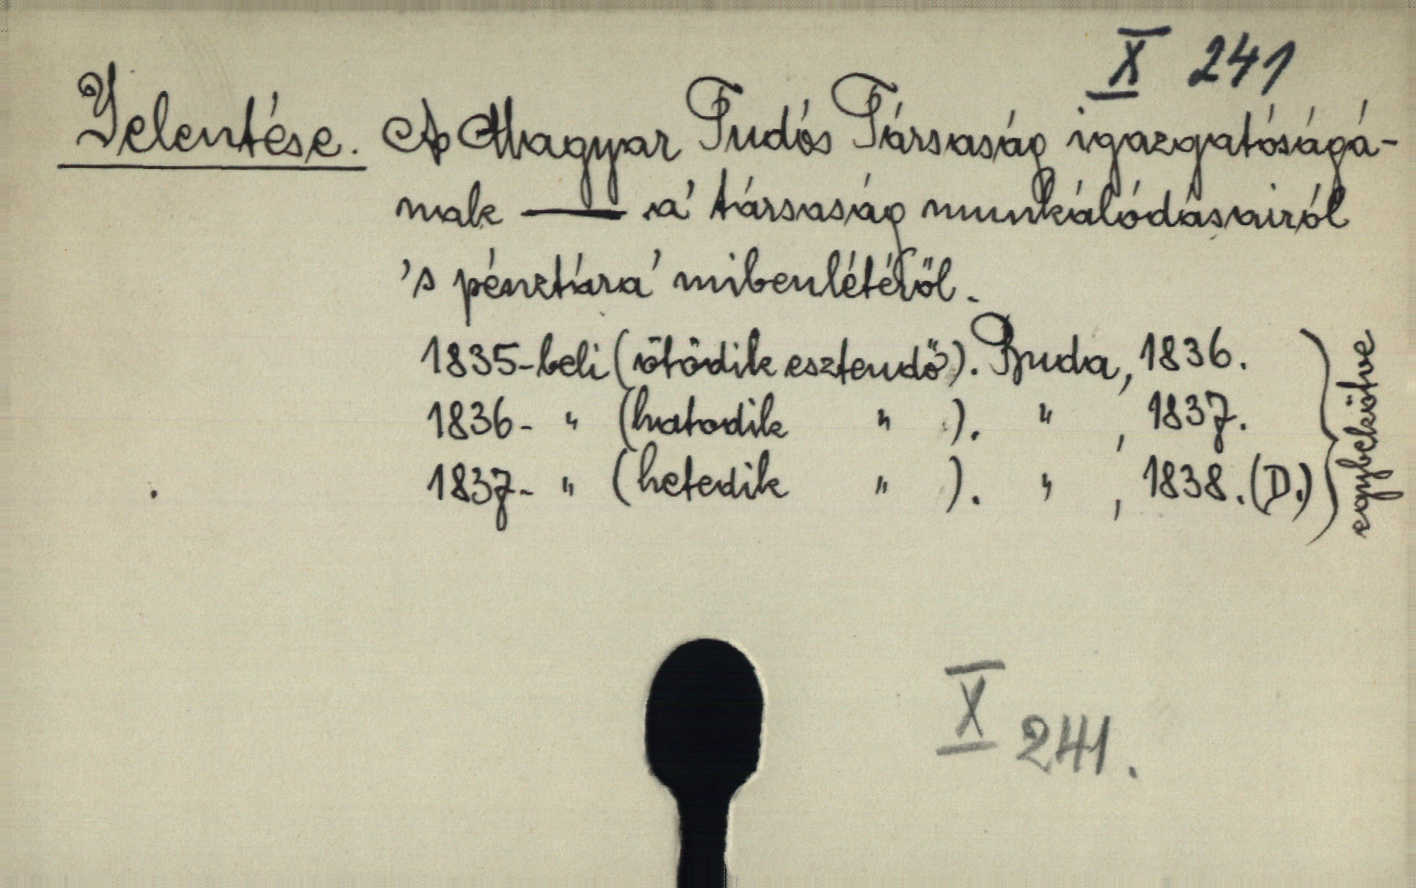 X 241
Jelentése. A Magyar Tudós Társaság igazgatóságá-
nak —— a' társaság munkálódásairól
's pénztára' mibenlétéről.
1835-beli (ötödik esztendő). Buda, 1836.
1836- " (hatodik " ). " , 1837.
1837- " (hetedik " ). " , 1838. (D.)
egybekötve
X 241.